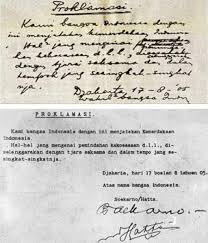 Proklamasi.
Kami bangsa Indonesia dengan
ini menjatakan kemerdekaan Indonesia.
Hal2 jang mengenai
d.l.l., disele
dengan tjara saksama dan dalam
tempoh jang sesingkat-singkat
nja.
Djakarta 17-8-'05
Wakil2 bangsa Indonesia
PROKLAMASI.
Kami bangsa Indonesia dengan ini menjatakan Kemerdekaan
Indonesia.
Hal-hal jang mengenai pemindahan kekoeasaan d.l.l., di-
selenggarakan dengan tjara saksama dan dalam tempo jang se-
singkat-singkatnja.
Djakarta, hari 17 boelan 8 tahoen 05.
Atas nama bangsa Indonesia.
Soekarno/Hatta.
Soekarno.
Hatta